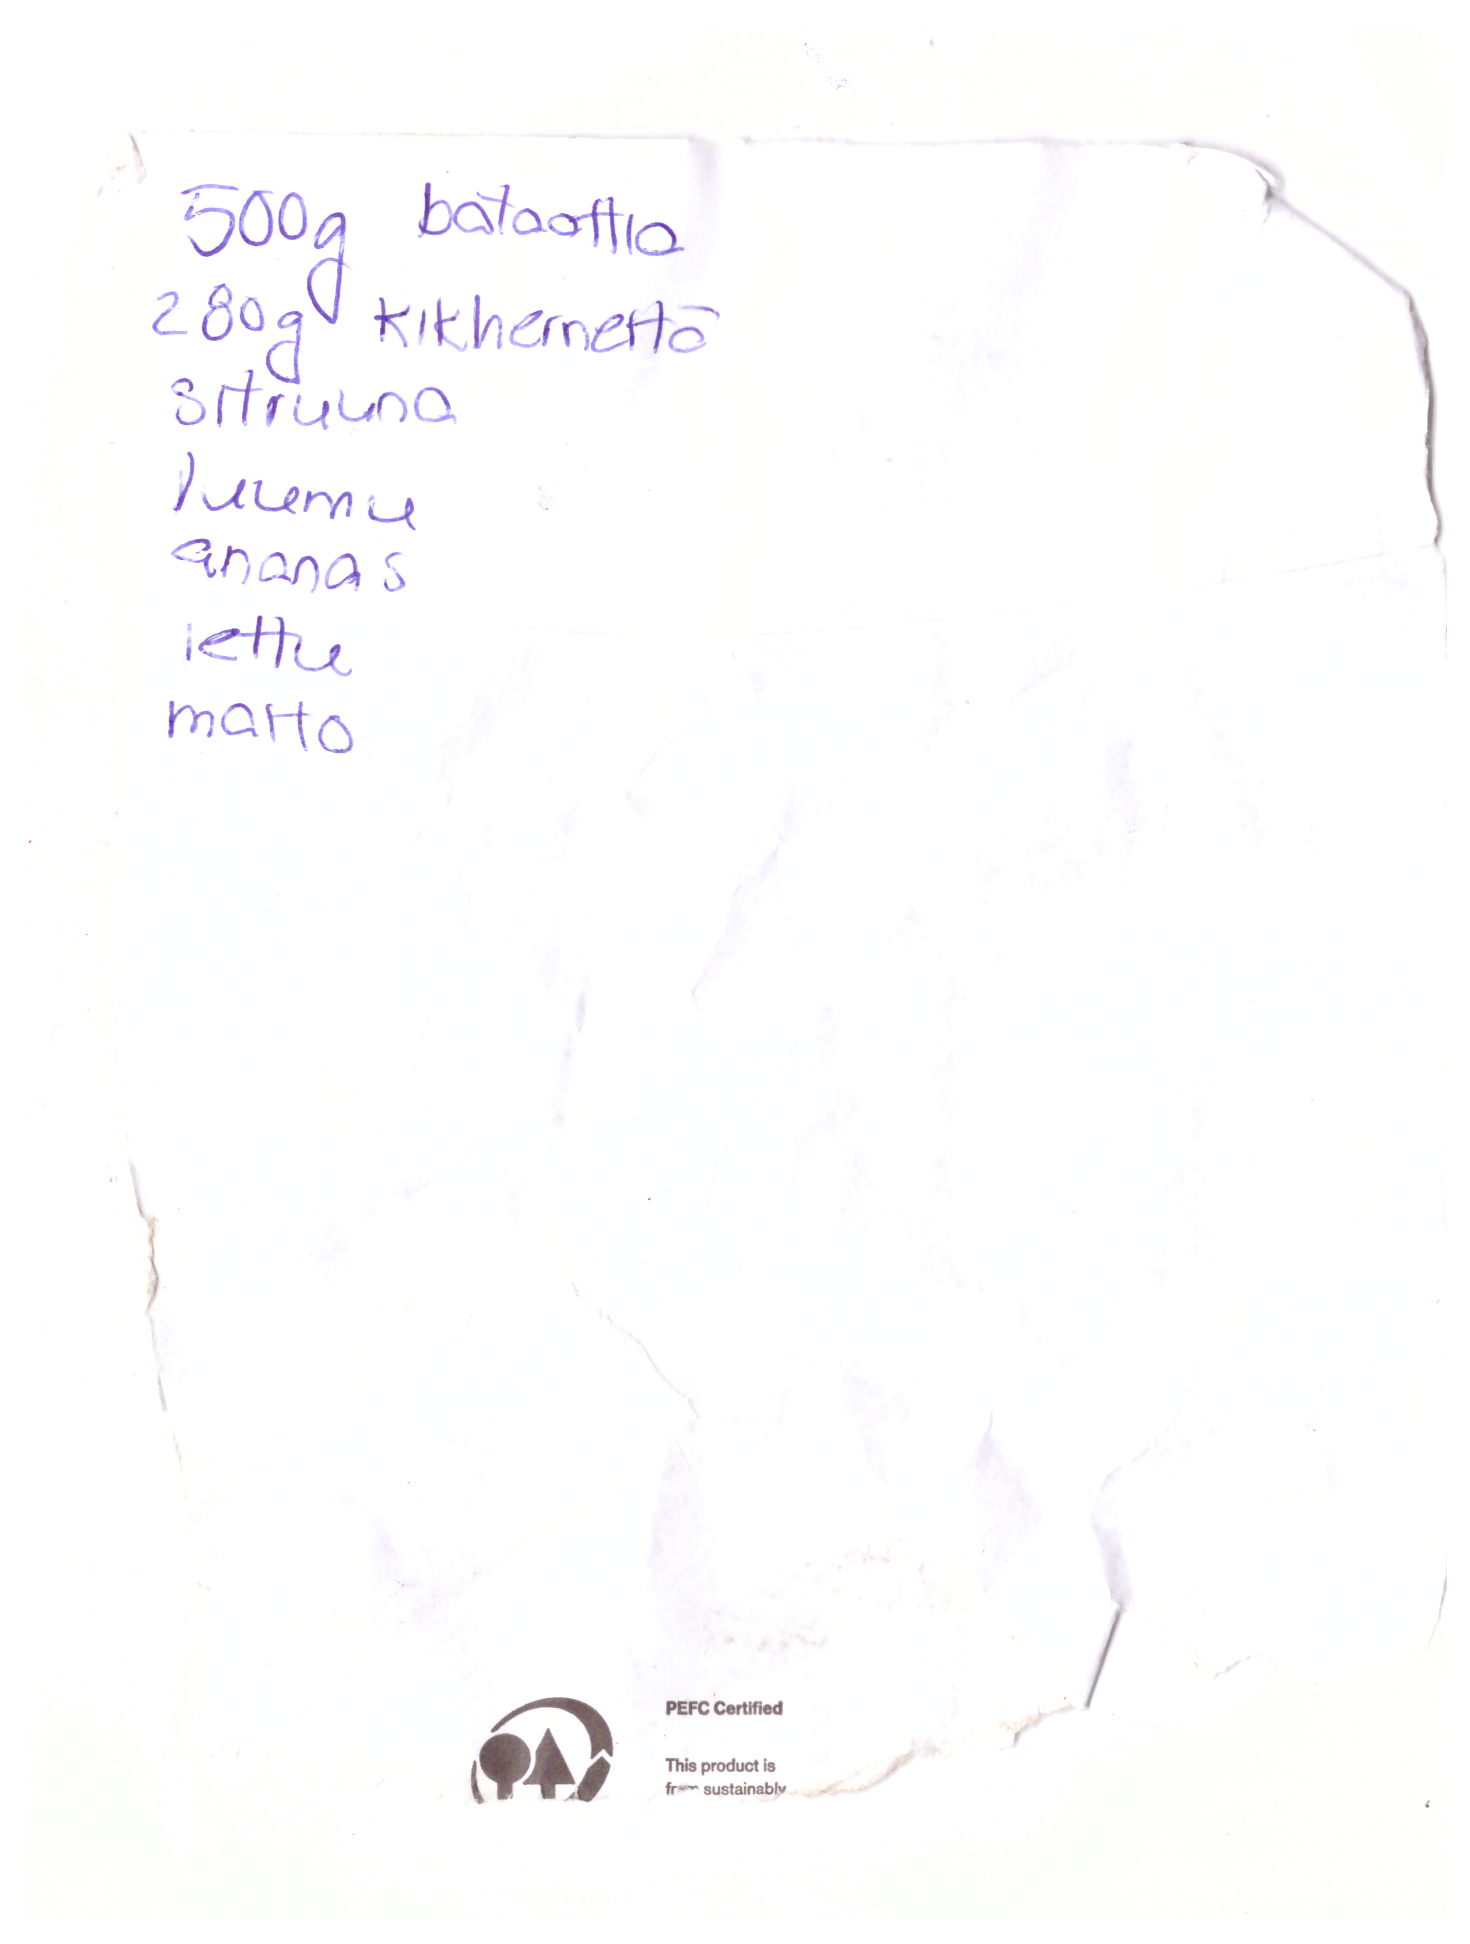 500g bataattia
280g kikherneitä
sitruuna
luumu
ananas
lettu
maito
PEFC Certified
This product is
from sustainably